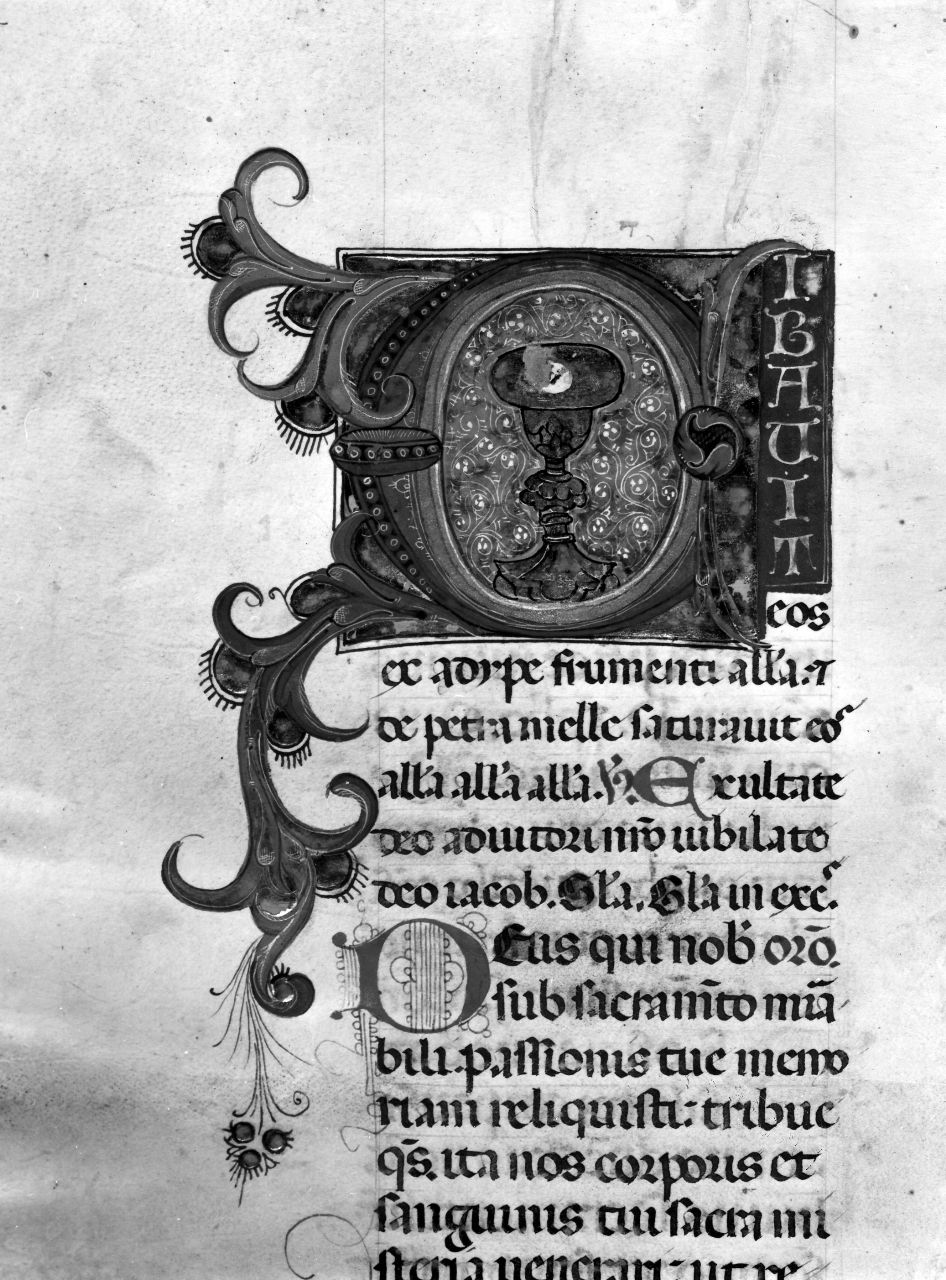 CIBAUIT
eos
ex adype frumenti all'a. ⁊
de petra melle saturauit eos
all'a all'a all'a. ℣. Exultate
deo adiutori nr̄o iubilate
deo iacob. Gl'a. Gl'a in exc̄.
Deus qui nob' oro᷒.
sub sacram̄to mira
bili. passionis tue memo
riam reliquisti: tribue
qs̄. ita nos corporis et
sanguinis tui sacra mi
steria uenerari: ut re